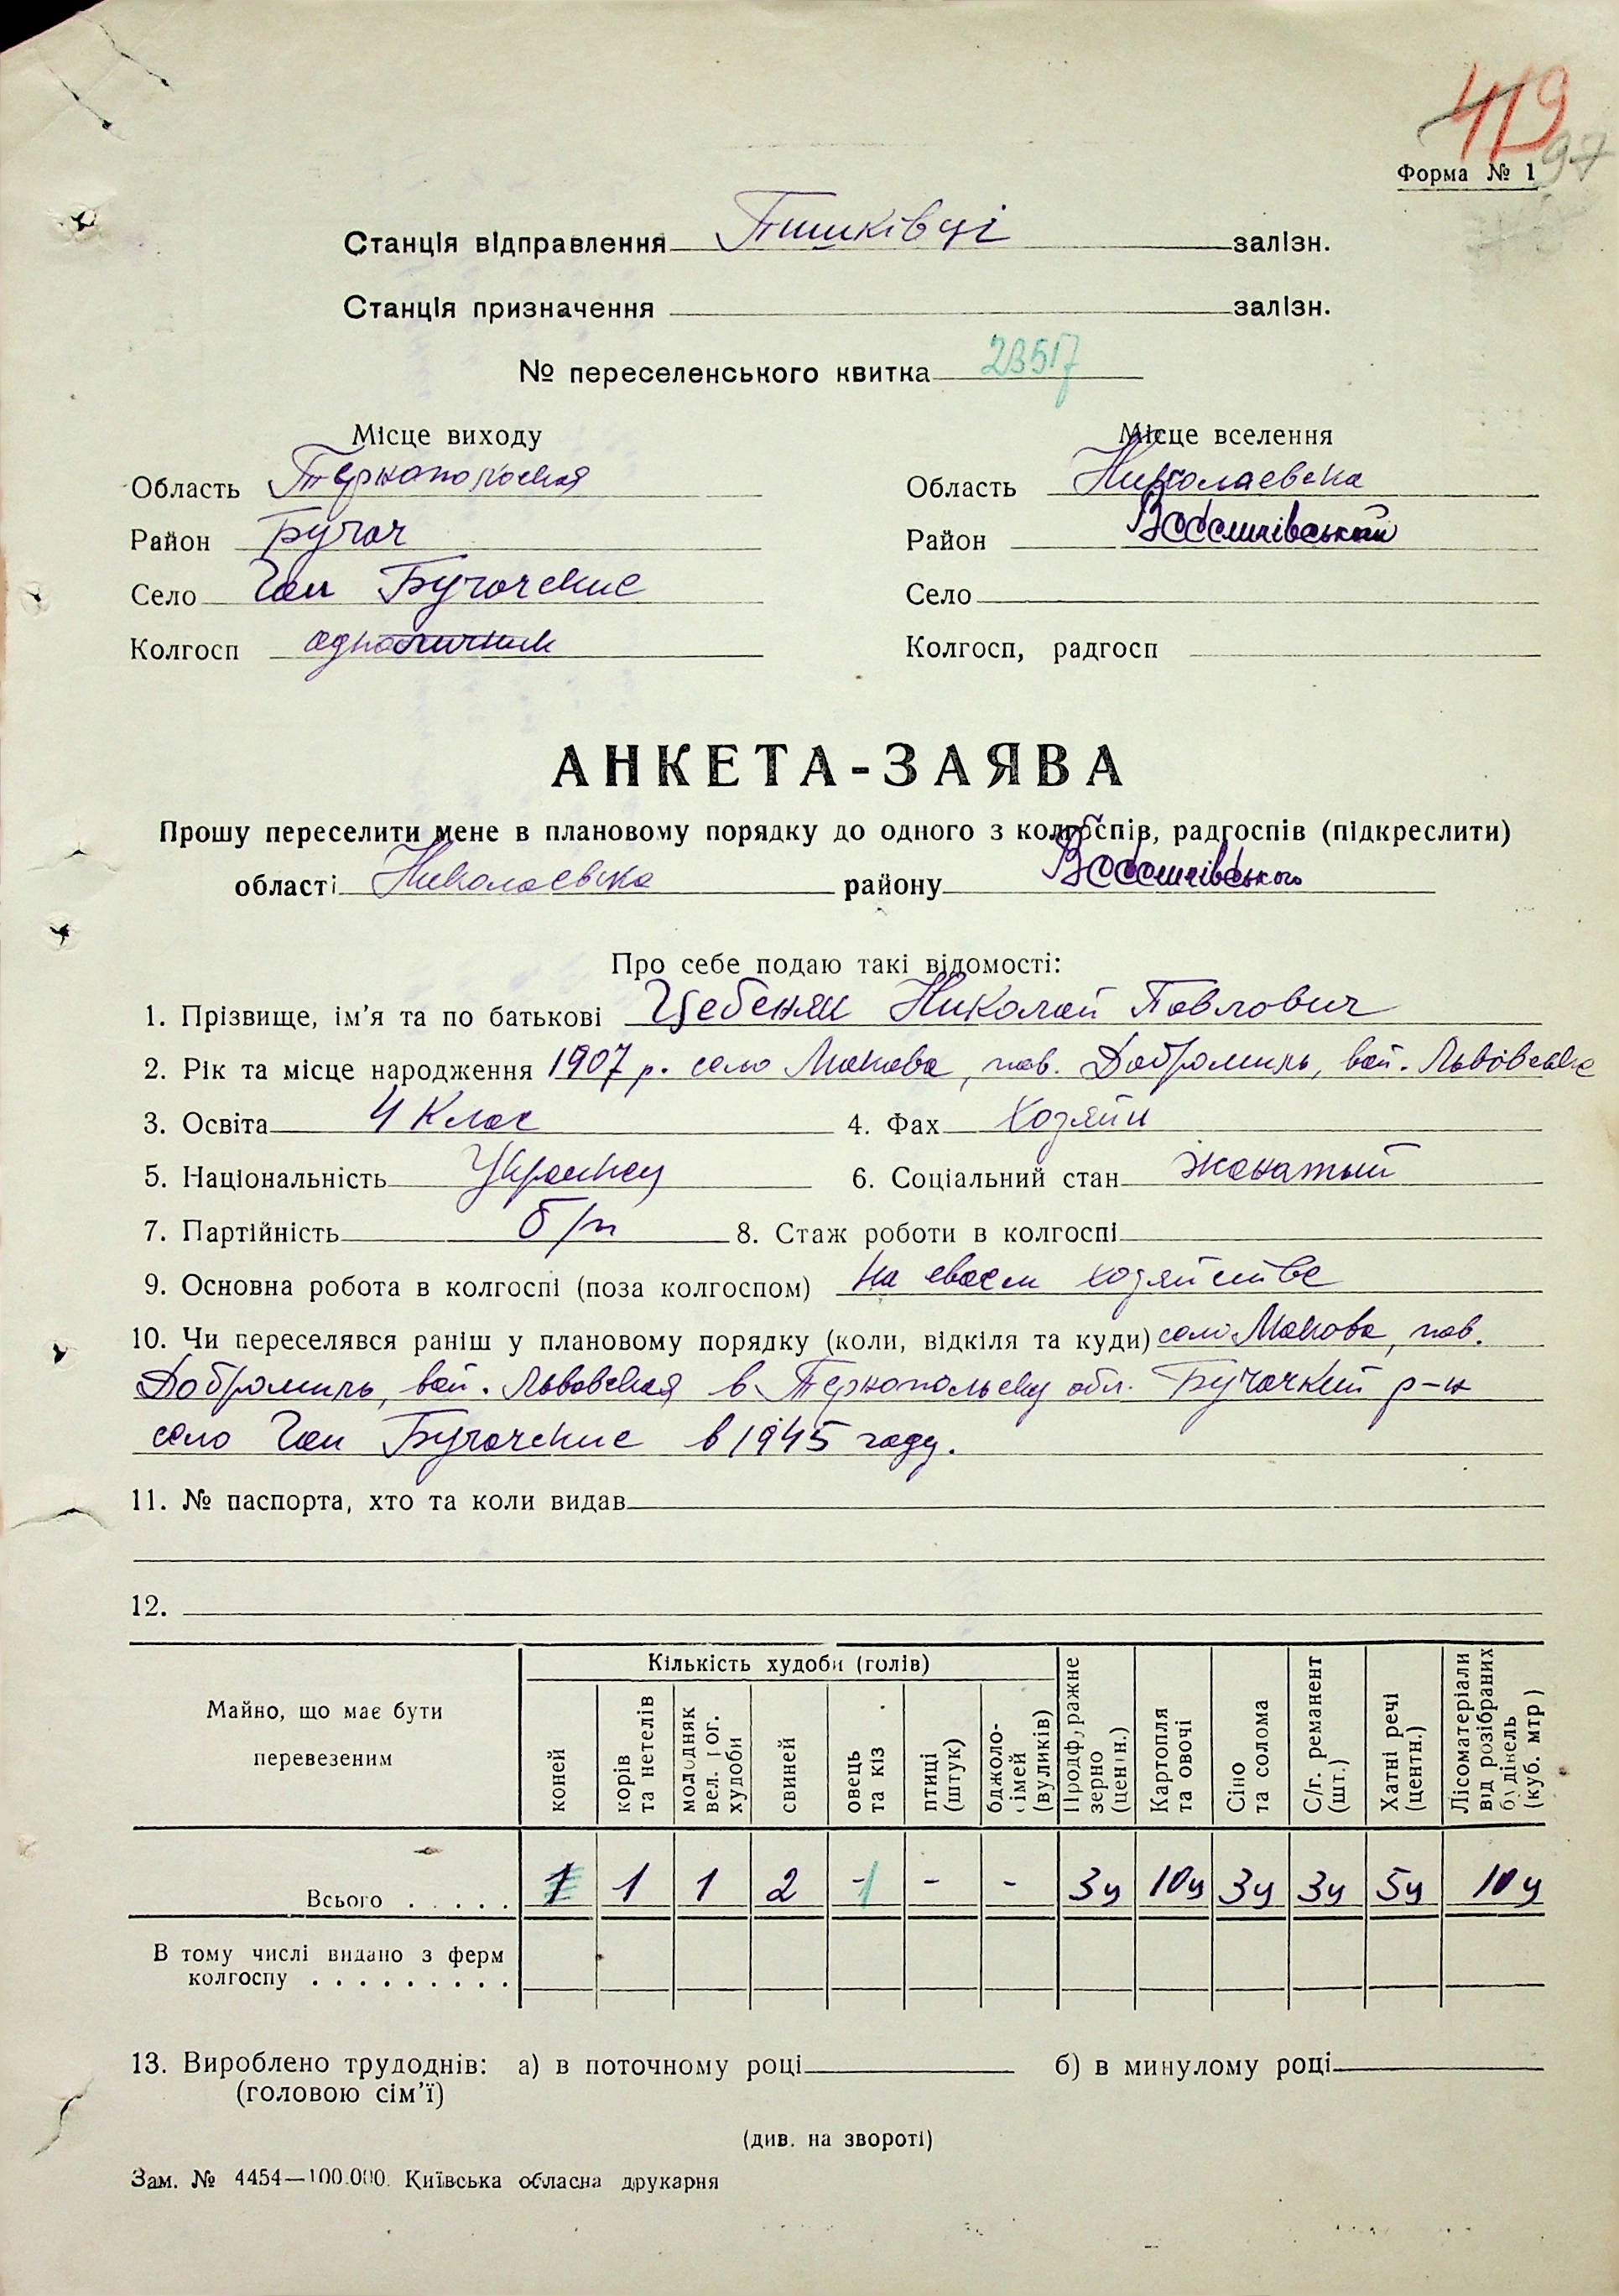 419
97
Форма № 1
Станція відправлення Пишківці залізн.
Станція призначення залізн.
№ переселенського квитка 23517
Місце виходу
Місце вселення
Область Тернопольская
Область Николаевска
Район Бучач
Район
Село Гаи Бучачские
Село
Колгосп
Колгосп, радгосп
АНКЕТА-ЗАЯВА
Прошу переселити мене в плановому порядку до одного з колгоспів, радгоспів (підкреслити)
області Николаевска району
Про себе подаю такі відомості:
1. Прізвище, ім’я та по батькові Цебеняк Николай Павлович
2. Рік та місце народження 1907 р. село Макова, пов. Добромиль, вой. Львовська
3. Освіта 4 Клас 4. Фах Хозяйн
5. Національність Украинец 6. Соціальний стан жонатый
7. Партійність б/п 8. Стаж роботи в колгоспі
9. Основна робота в колгоспі (поза колгоспом) на своем хозяйстве
10. Чи переселявся раніш у плановому порядку (коли, відкіля та куди) село Макова, пов.
Добромиль, вой. Львовская в Тернопольску обл. Бучачкий р-н
село Гаи Бучачские в 1945 году.
11. № паспорта, хто та коли видав
12.
Майно, що має бути перевезеним
Кількість худоби (голів)
коней
корів та нетелів
молодняк вел. рог. худоби
свиней
овець та кіз
птиці (штук)
бджолосімей (вуликів)
Продф,ражне зерно (центн.)
Картопля та овочі
Сіно та солома
С/г. реманент (шт.)
Хатні речі (центн.)
Лісоматеріали від розібраних будівель (куб. мтр)
Всього . . . . . 1 1 1 2 1 - - 3ц 10ц 3ц 3ц 5ц 10ц
В тому числі видано з ферм
колгоспу . . . . . . . . .
13. Вироблено трудоднів: а) в поточному році б) в минулому році
(головою сім’ї)
(див. на звороті)
Зам. № 4454—100.000. Київська обласна друкарня